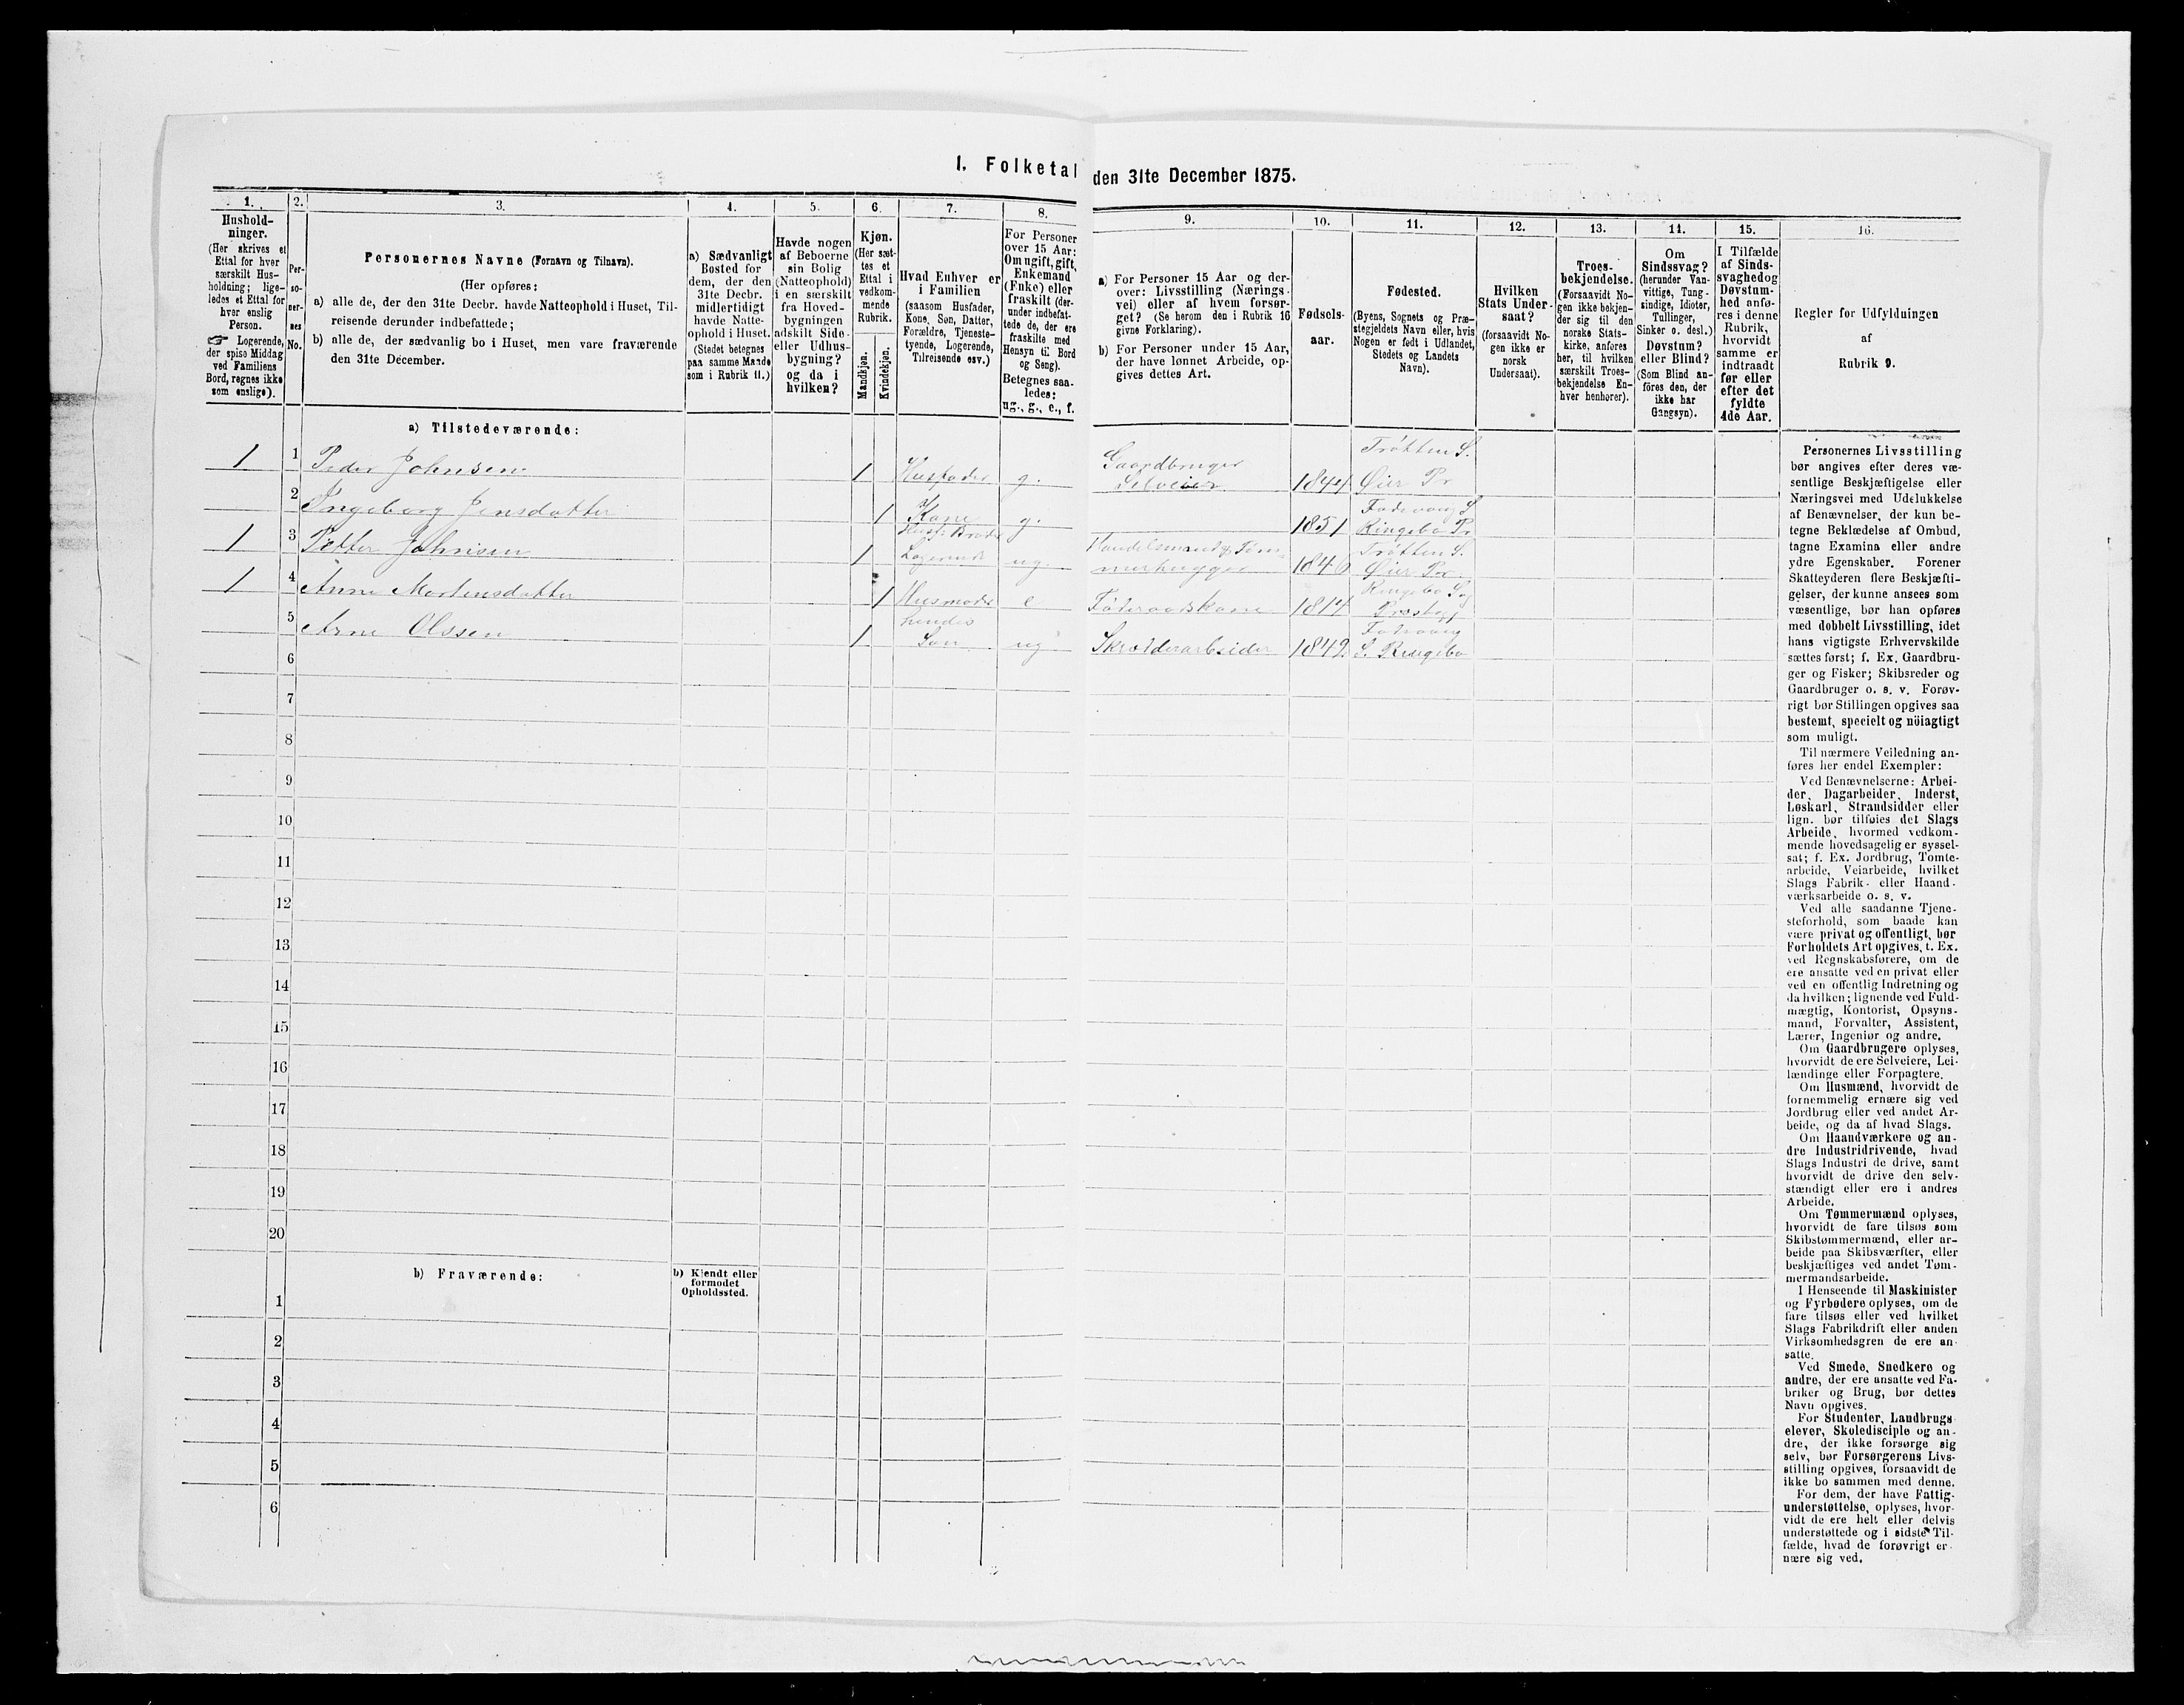 I. Folketal den 31te December 1875.
1.
Hushold-
ninger.
(Her skrives et
Ettal for hver
særskilt Hus-
holdning; lige-
ledes et Ettal for
hver enslig
Person.
☞ Logerende,
der spise Middag
ved Familiens
Bord, regnes ikke
som enslige).
2.
Per-
so-
ner-
nes
No.
3.
Personernes Navne (Fornavn og Tilnavn).
(Her opføres:
a) alle de, der den 31te Decbr. havde Natteophold i Huset, Til-
reisende derunder indbefattede;
b) alle de, der sædvanlig bo i Huset, men vare fraværende
den 31te December.
4.
a) Sædvanligt
Bosted for
dem, der den
31te Decbr.
midlertidigt
havde Natte-
ophold i Huset.
(Stedet betegnes
paa samme Maade
som i Rubrik 11.)
5.
Havde nogen
af Beboerne
sin Bolig
(Natteophold)
i en særskilt
fra Hoved-
bygningen
adskilt Side-
eller Udhus-
bygning?
og da i
hvilken?
6.
Kjøn.
(Her sæt-
tes et
Ettal i
vedkom-
mende
Rubrik.
Mandkjøn.
Kvindekjøn.
7.
Hvad Enhver er
i Familien
(saasom Husfader,
Kone, Søn, Datter,
Forældre, Tjeneste-
tyende, Logerende,
Tilreisende osv.)
8.
For Personer
over 15 Aar:
Om ugift, gift,
Enkemand
(Enke) eller
fraskilt (der-
under indbefat-
tede de, der ere
fraskilte med
Hensyn til Bord
og Seng).
Betegnes saa-
ledes:
ug., g., e., f.
9.
a) For Personer 15 Aar og der-
over: Livsstilling (Nærings-
vei) eller af hvem forsør-
get? (Se herom den i Rubrik 16
givne Forklaring).
b) For Personer under 15 Aar,
der have lønnet Arbeide, op-
gives dettes Art.
10.
Fødsels-
aar.
11.
Fødested.
(Byens, Sognets og Præ-
stegjeldets Navn eller, hvis
Nogen er født i Udlandet,
Stedets og Landets
Navn).
12.
Hvilken
Stats Under-
saat?
(forsaavidt No-
gen ikke er
norsk
Undersaat).
13.
Troes-
bekjendelse.
(Forsaavidt No-
gen ikke bekjen-
der sig til den
norske Stats-
kirke, anføres
her, til hvilken
særskilt Troes-
bekjendelse En-
hver henhører).
14.
Om
Sindssvag?
(herunder Van-
vittige, Tung-
sindige, Idioter,
Tullinger,
Sinker o. desl.)
Døvstum?
eller Blind?
(Som Blind an-
föres den, der
ikke har
Gangsyn).
15.
I Tilfælde
af Sinds-
svaghed og
Døvstum-
hed anfø-
res i denne
Rubrik,
hvorvidt
samme er
indtraadt
før eller
efter det
fyldte
4de Aar.
16.
Regler for Udfyldningen
af
Rubrik 9.
a) Tilstedeværende:
1 1 Peder Johnsen 1 Husfader g. Gaardbruger Selveier 1844 Trötten S. Øier Pr
2 Ingeborg Jensdatter 1 Kone g. 1851 Fodvang S Ringebo Pr
1 3 Petter Johnsen 1 Husf. Broder Logerende ug. Handelsmand & Töm- merhugger 1846 Trötten S. Øier Pr
1 4 Anne Mortensdatter 1 Husmoder e Föderaadskone 1814 Ringebo Sog Præsteg
5 Arne Olssen 1 hendes Søn ug Skrædderarbeider 1842 Fodvang S. Ringebo
6
7
8
9
10
11
12
13
14
15
16
17
18
19
20
b) Fraværende:
b) Kjendt eller
formodet
Opholdssted.
1
2
3
4
5
6
Personernes Livsstilling
bør angives efter deres væ-
sentlige Beskjæftigelse eller
Næringsvei med Udelukkelse
af Benævnelser, der kun be-
tegne Beklædelse af Ombud,
tagne Examina eller andre
ydre Egenskaber. Forener
Skatteyderen flere Beskjæfti-
gelser, der kunne ansees som
væsentlige, bør han opføres
med dobbelt Livsstilling, idet
hans vigtigste Erhvervskilde
sættes først; f. Ex. Gaardbru-
ger og Fisker; Skibsreder og
Gaardbruger o. s. v. Forøv-
rigt bør Stillingen opgives saa
bestemt, specielt og nöiagtigt
som muligt.
Til nærmere Veiledning an-
føres her endel Exempler:
Ved Benævnelserne: Arbei-
der, Dagarbeider, Inderst,
Løskarl, Strandsidder eller
lign. bør tilføies det Slags
Arbeide, hvormed vedkom-
mende hovedsagelig er syssel-
sat; f. Ex. Jordbrug, Tomte-
arbeide, Veiarbeide, hvilket
Slags Fabrik- eller Haand-
værksarbeide o. s. v.
Ved alle saadanne Tjene-
steforhold, som baade kan
være privat og offentligt, bør
Forholdets Art opgives, t. Ex.
ved Regnskabsførere, om de
ere ansatte ved en privat eller
ved en offentlig Indretning og
da hvilken; lignende ved Fuld-
mægtig, Kontorist, Opsyns-
mand, Forvalter, Assistent,
Lærer, Ingeniør og andre.
Om Gaardbrugere oplyses,
hvorvidt de ere Selveiere, Lei-
lændinge eller Forpagtere.
Om Husmænd, hvorvidt de
fornemmelig ernære sig ved
Jordbrug eller ved andet Ar-
beide, og da af hvad Slags.
Om Haandværkere og an-
dre Industridrivende, hvad
Slags Industri de drive, samt
hvorvidt de drive den selv-
stændigt eller ere i andres
Arbeide.
Om Tømmermænd oplyses,
hvorvidt de fare tilsøs som
Skibstømmermænd, eller ar-
beide paa Skibsværfter, eller
beskjæftiges ved andet Tøm-
mermandsarbeide.
I Henseende til Maskinister
og Fyrbødere oplyses, om de
fare tilsøs eller ved hvilket
Slags Fabrikdrift eller anden
Virksomhedsgren de ere an-
satte.
Ved Smede, Snedkere og
andre, der ere ansatte ved Fa-
briker og Brug, bør dettes
Navn opgives.
For Studenter, Landbrugs
elever, Skoledisciple og an-
dre, der ikke forsørge sig
selv, bør Forsørgerens Livs-
stilling opgives, forsaavidt de
ikke bo sammen med denne.
For dem, der have Fattig-
understøttelse, oplyses, hvor-
vidt de ere helt eller delvis
understøttede og i sidste Til-
fælde, hvad de forøvrigt er-
nære sig ved.